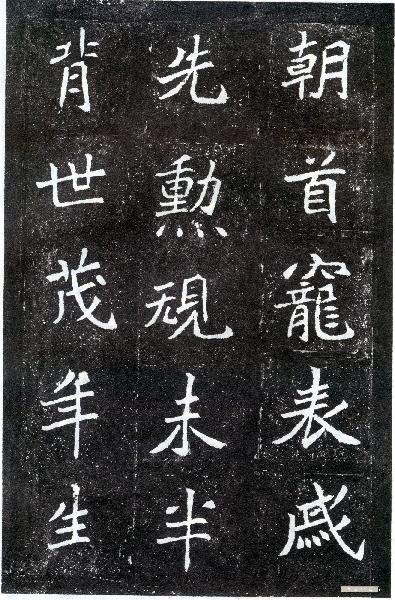 朝首寵表感
先勲規未半
背世茂年生